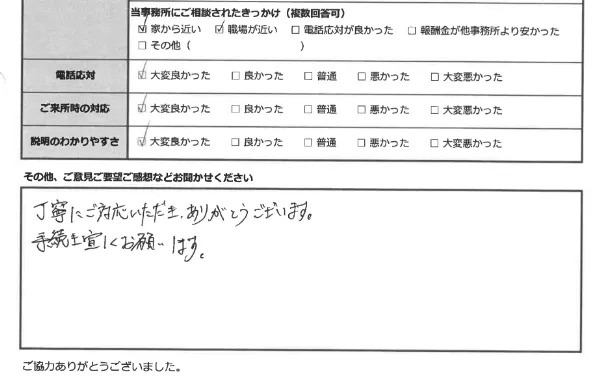 当事務所にご相談されたきっかけ（複数回答可）
☑ 家から近い ☑ 職場が近い □ 電話応対が良かった □ 報酬金が他事務所より安かった
□ その他（　　　　　　　　　）
電話応対 ☑ 大変良かった □ 良かった □ 普通 □ 悪かった □ 大変悪かった
ご来所時の対応 ☑ 大変良かった □ 良かった □ 普通 □ 悪かった □ 大変悪かった
説明のわかりやすさ ☑ 大変良かった □ 良かった □ 普通 □ 悪かった □ 大変悪かった
その他、ご意見ご要望ご感想などお聞かせください
丁寧にご対応いただき、ありがとうございます。
手続き宜しくお願いします。
ご協力ありがとうございました。